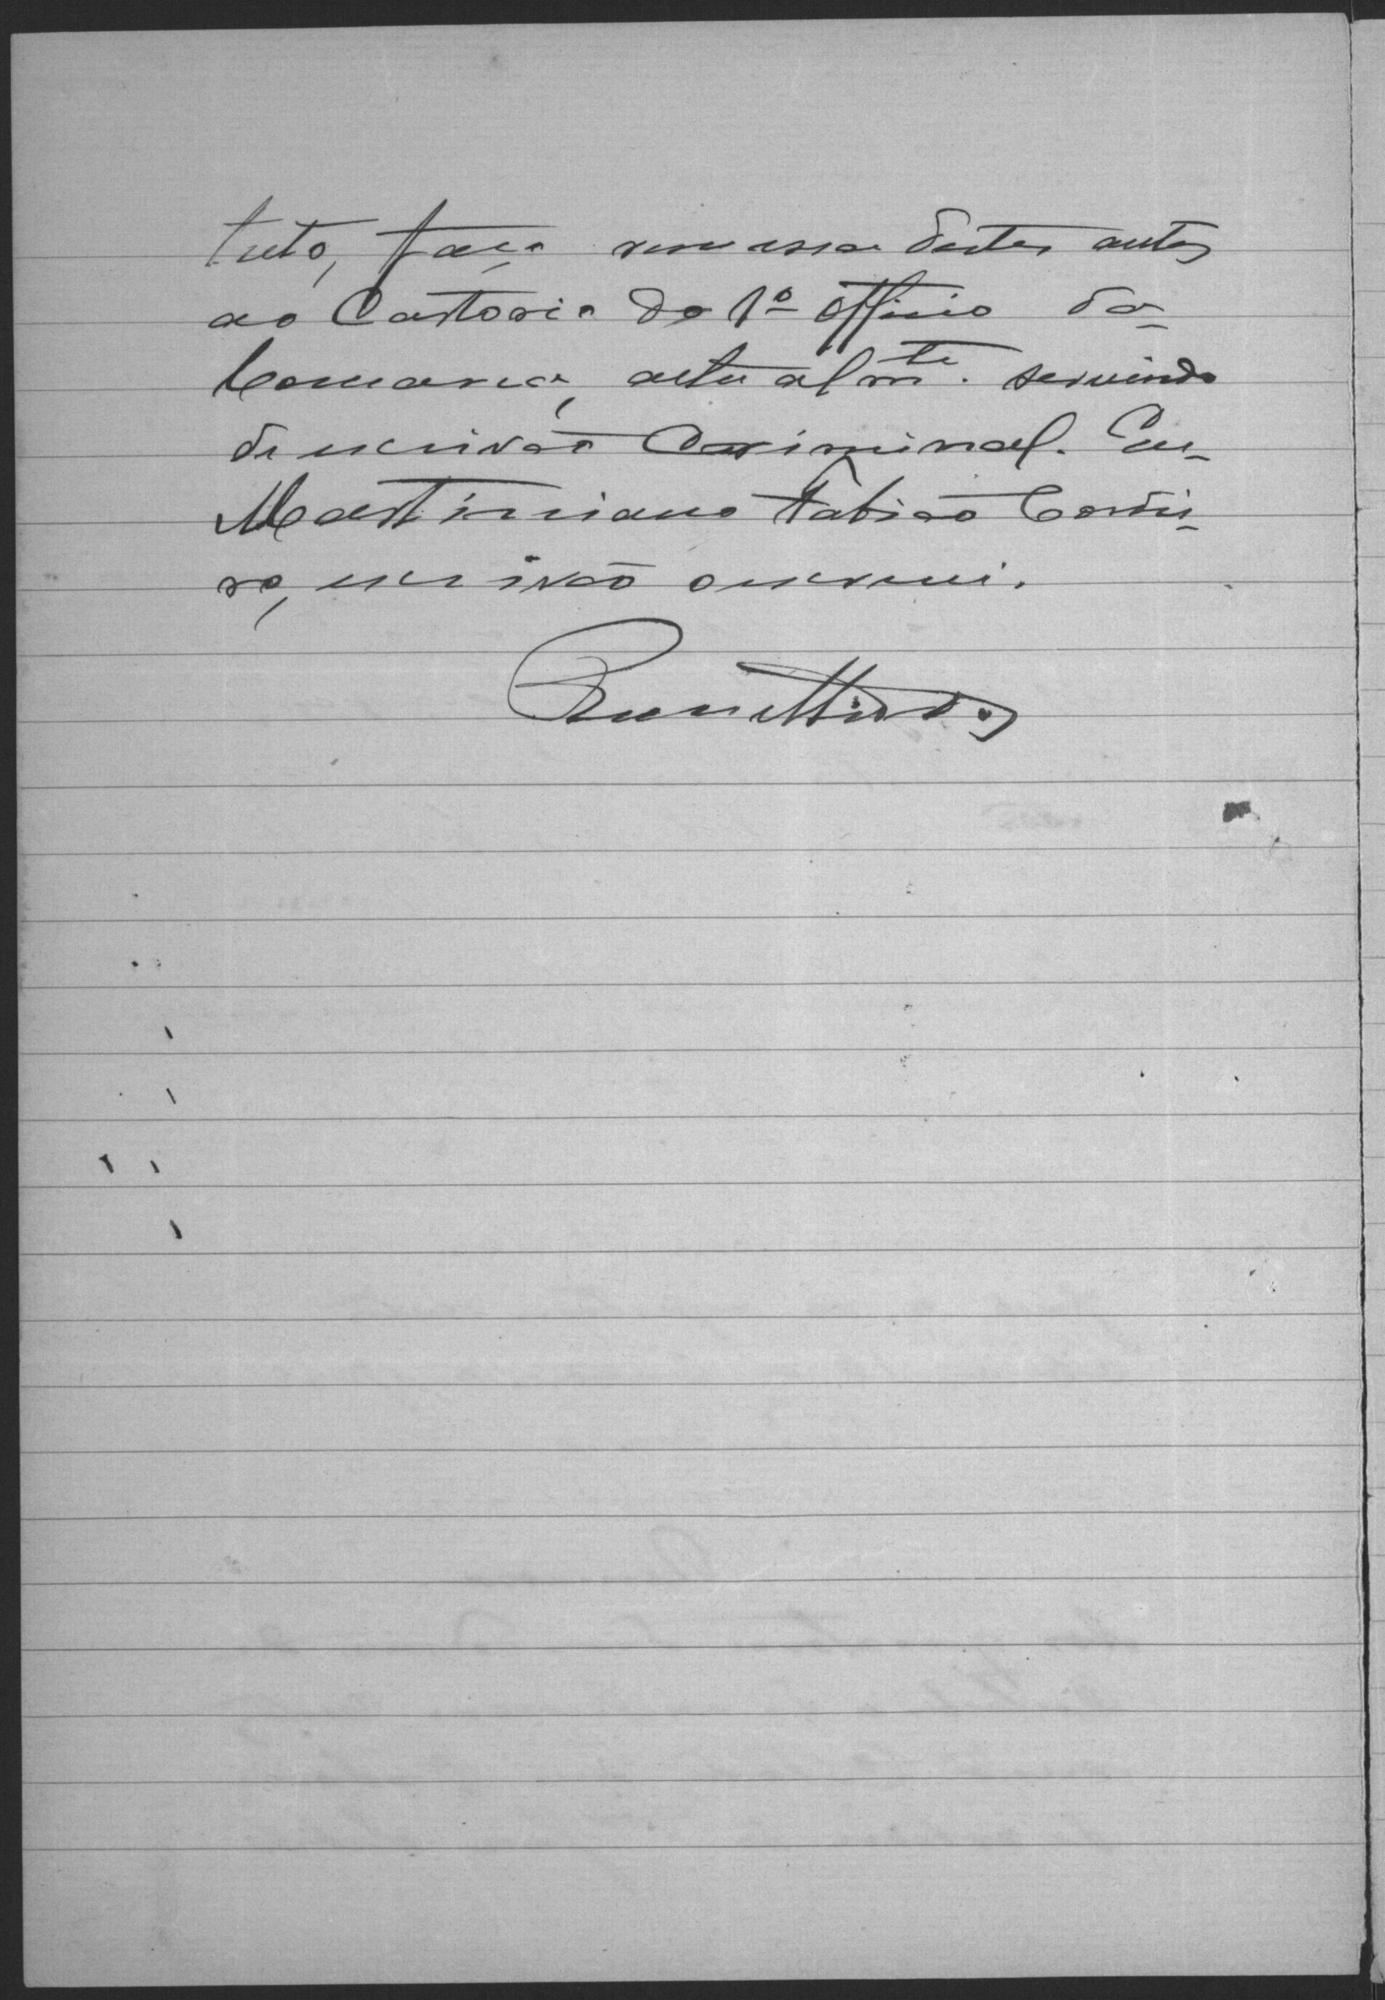 tuto, faço remessa destes autos
ao Cartorio do 1º officio da
Comarca, actualmte. servindo
de escrivão Criminal. Eu
Martiniano Fabião Cordei-
ro, escrivão o escrevi.